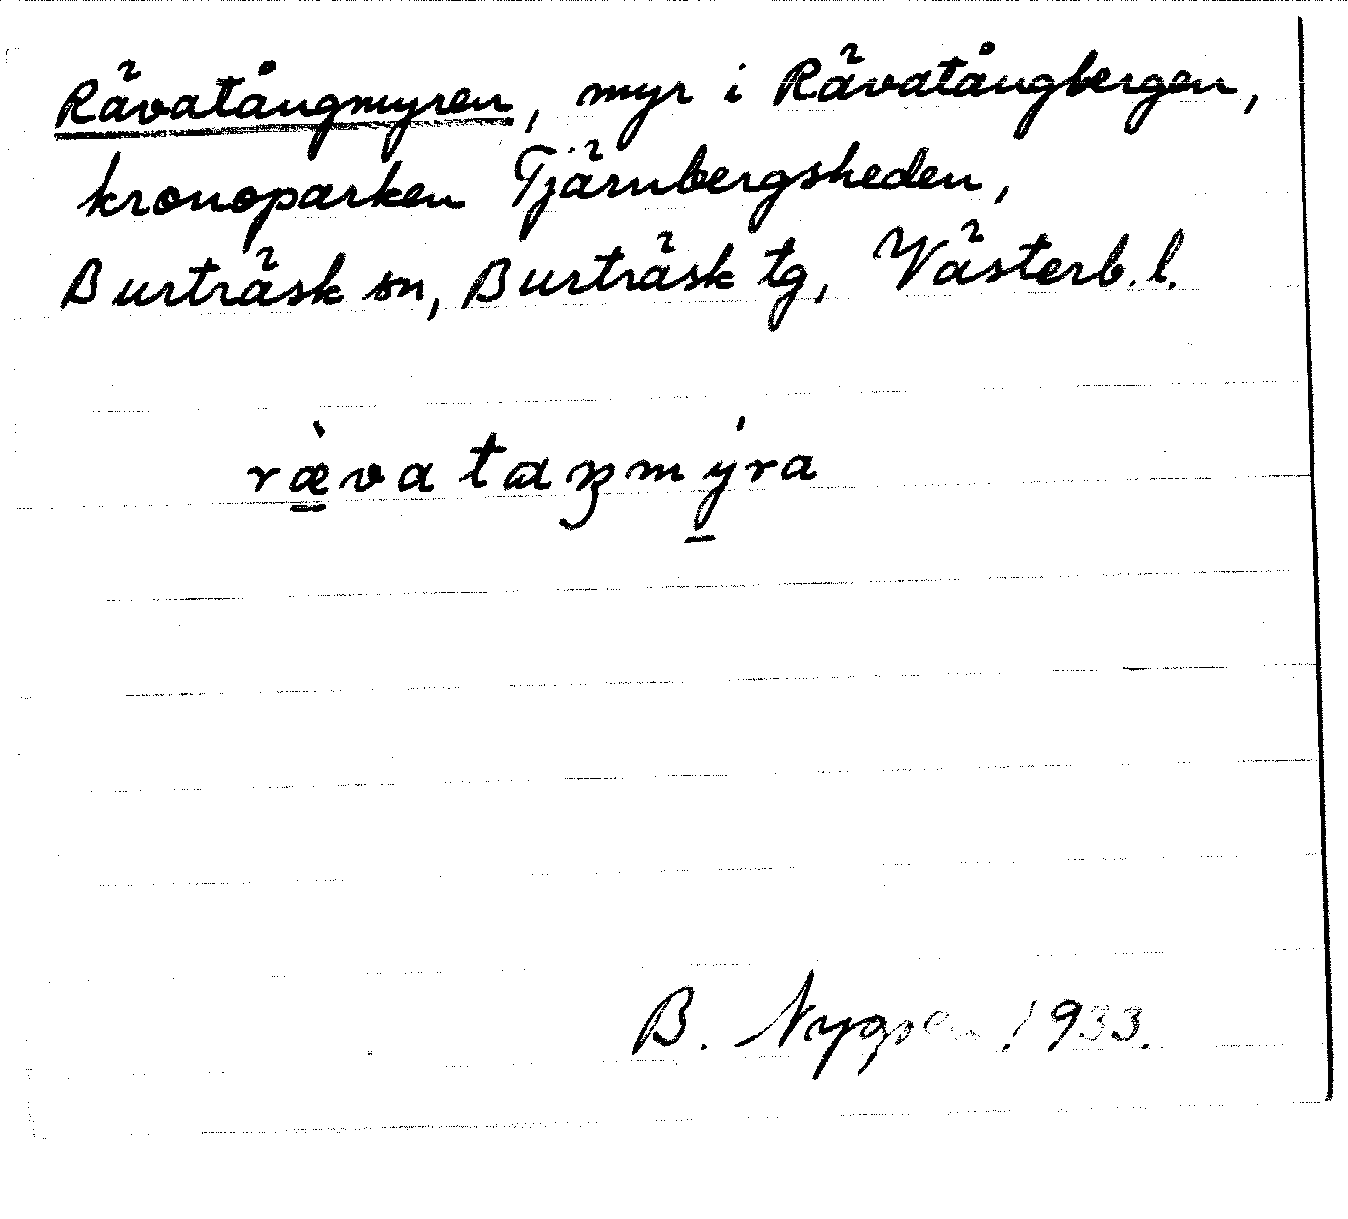 Rävatångmyren, myr i Rävatångbergen,
kronoparken Tjärnbergsheden,
Burträsk sn, Burträsk tg, Västerb. l.
ræ̠̀vatɷŋmý̠ra
B. Nygren 1933.